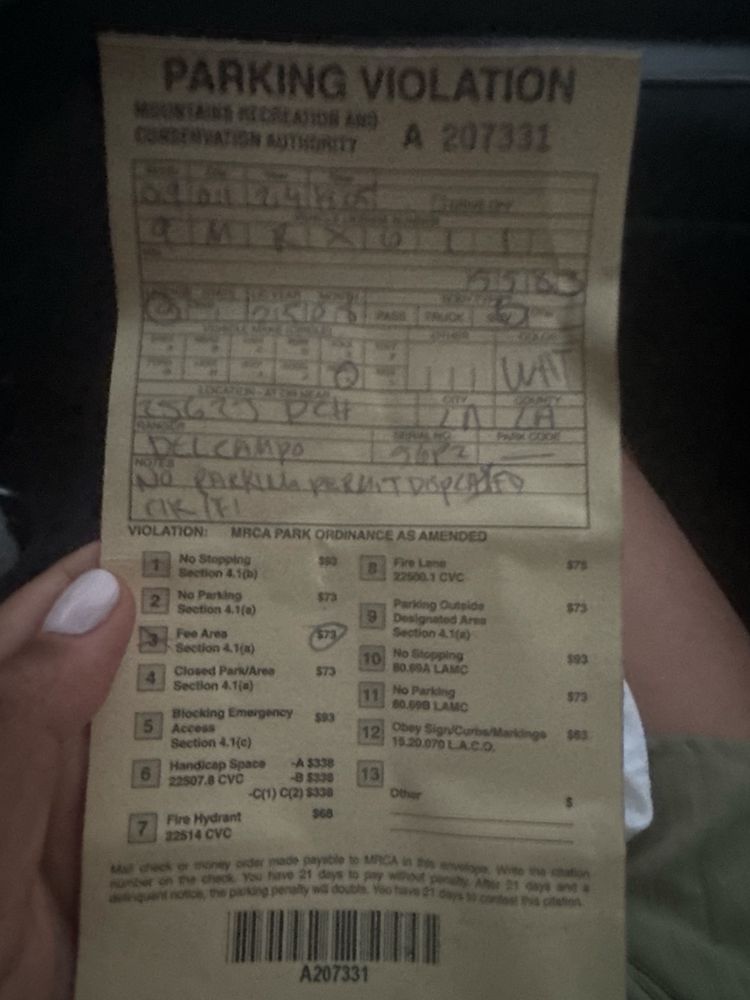 PARKING VIOLATION
MOUNTAINS RECREATION AND
CONSERVATION AUTHORITY A 207331
9 M R X
BODY TYPE
PASS TRUCK
VEHICLE MAKE (CIRCLE)
OTHER
WHT
LOCATION - AT OR NEAR CITY COUNTY
25623 PCH LA LA
RANGER SERIAL NO. PARK CODE
DELCAMPO
NOTES
NO PARKING PERMIT DISPLAYED
VIOLATION: MRCA PARK ORDINANCE AS AMENDED
1 No Stopping $93
Section 4.1(b)
2 No Parking $73
Section 4.1(a)
3 Fee Area $73
Section 4.1(a)
4 Closed Park/Area $73
Section 4.1(a)
5 Blocking Emergency $93
Access
Section 4.1(c)
6 Handicap Space -A $338
22507.8 CVC -B $338
-C(1) C(2) $338
7 Fire Hydrant $68
22514 CVC
8 Fire Lane $78
22500.1 CVC
9 Parking Outside $73
Designated Area
Section 4.1(a)
10 No Stopping $93
80.69A LAMC
11 No Parking $73
80.69B LAMC
12 Obey Sign/Curbs/Markings $63
15.20.070 L.A.C.O.
13
Other $
Mail check or money order made payable to MRCA in this envelope. Write the citation
number on the check. You have 21 days to pay without penalty. After 21 days and a
delinquent notice, the parking penalty will double. You have 21 days to contest this citation.
A207331